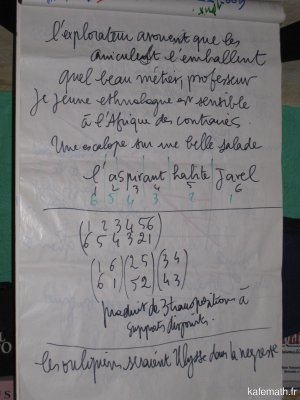 l'explorateur avouent que les
l'emballent
quel beau métier, professeur
Je jeune ethnologue est sensible
à l'Afrique des contraires.
Une escalope sur une belle salade
l'aspirant habite Javel
1 2 3 4 5 6
6 5 4 3 2 1
(1 2 3 4 5 6
6 5 4 3 2 1)
(1 6
6 1) (2 5
5 2) (3 4
4 3)
produit de 3 transpositions à
supports disjoints.
les oulipiens seraient Ulysse dans la
kafemath.fr